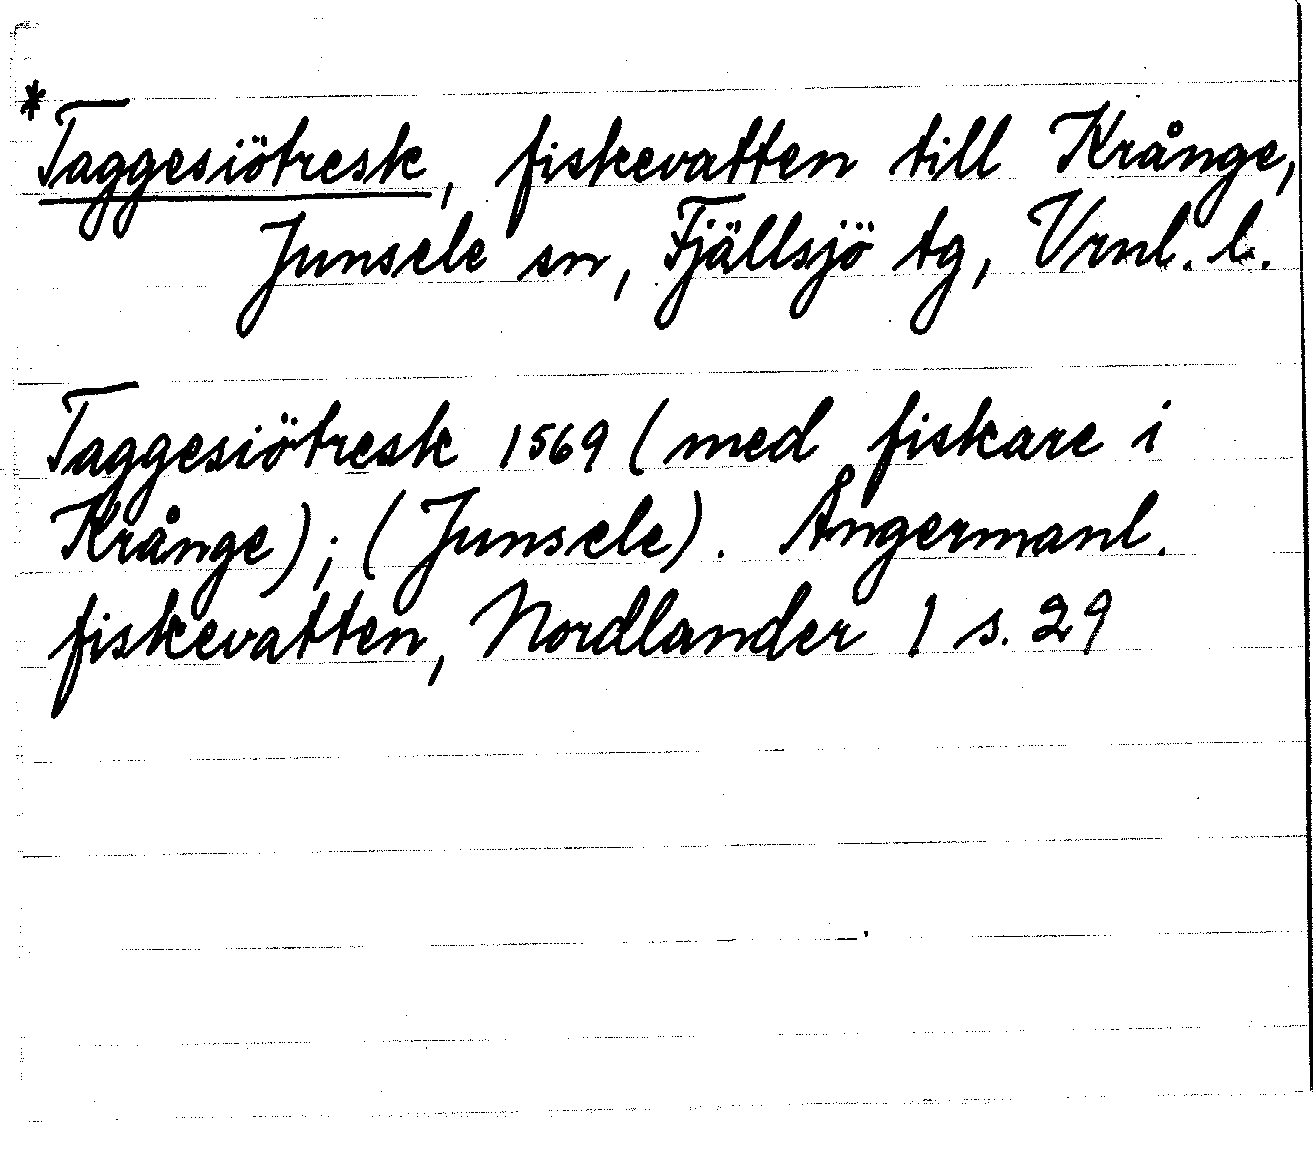 *Taggesiötresk, fiskevatten till Krånge,
Junsele sn, Fjällsjö tg, Vrnl. l.
Taggesiötresk 1569 (med fiskare i
Krånge); (Junsele). Ångermanl.
fiskevatten, Nordlander 1 s. 29